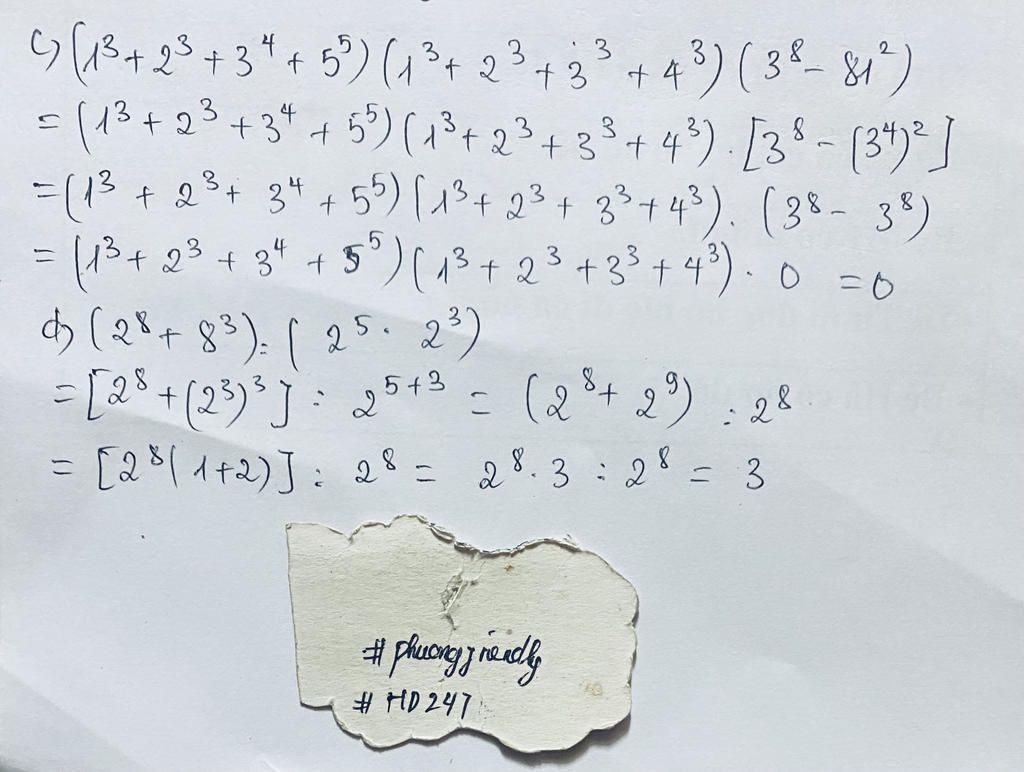 c) (1³ + 2³ + 3⁴ + 5⁵) (1³ + 2³ + 3³ + 4³) (3⁸ - 81²)
= (1³ + 2³ + 3⁴ + 5⁵) (1³ + 2³ + 3³ + 4³) . [3⁸ - (3⁴)²]
= (1³ + 2³ + 3⁴ + 5⁵) (1³ + 2³ + 3³ + 4³) . (3⁸ - 3⁸)
= (1³ + 2³ + 3⁴ + 5⁵) (1³ + 2³ + 3³ + 4³) . 0 = 0
d) (2⁸ + 8³) : (2⁵ . 2³)
= [2⁸ + (2³)³] : 2⁵⁺³ = (2⁸ + 2⁹) : 2⁸
= [2⁸(1+2)] : 2⁸ = 2⁸ . 3 : 2⁸ = 3
# phuongfriendly
# HD247